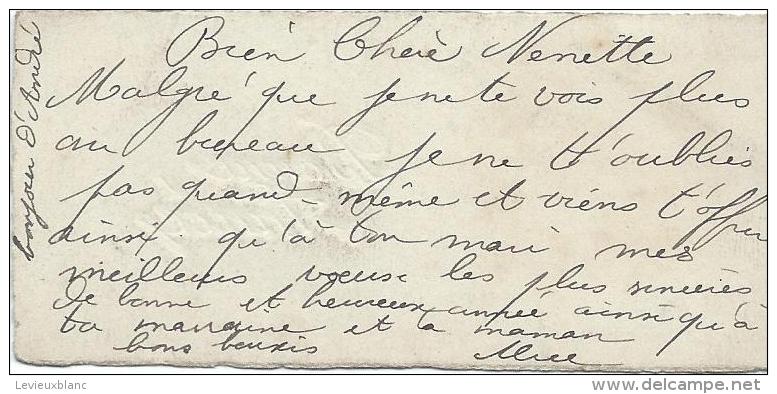 Bien Chère Nenette
Malgré que je ne te vois plus
au bureau je ne t'oublies
pas quand-même et viens t'offrir
ainsi qu'à ton mari mes
meilleurs voeux les plus sincères
de bonne et heureux année ainsi qu'à
ta marraine et ta maman
bons baisers Alice
bonjour d'André
Levieuxblanc
delcampe.net